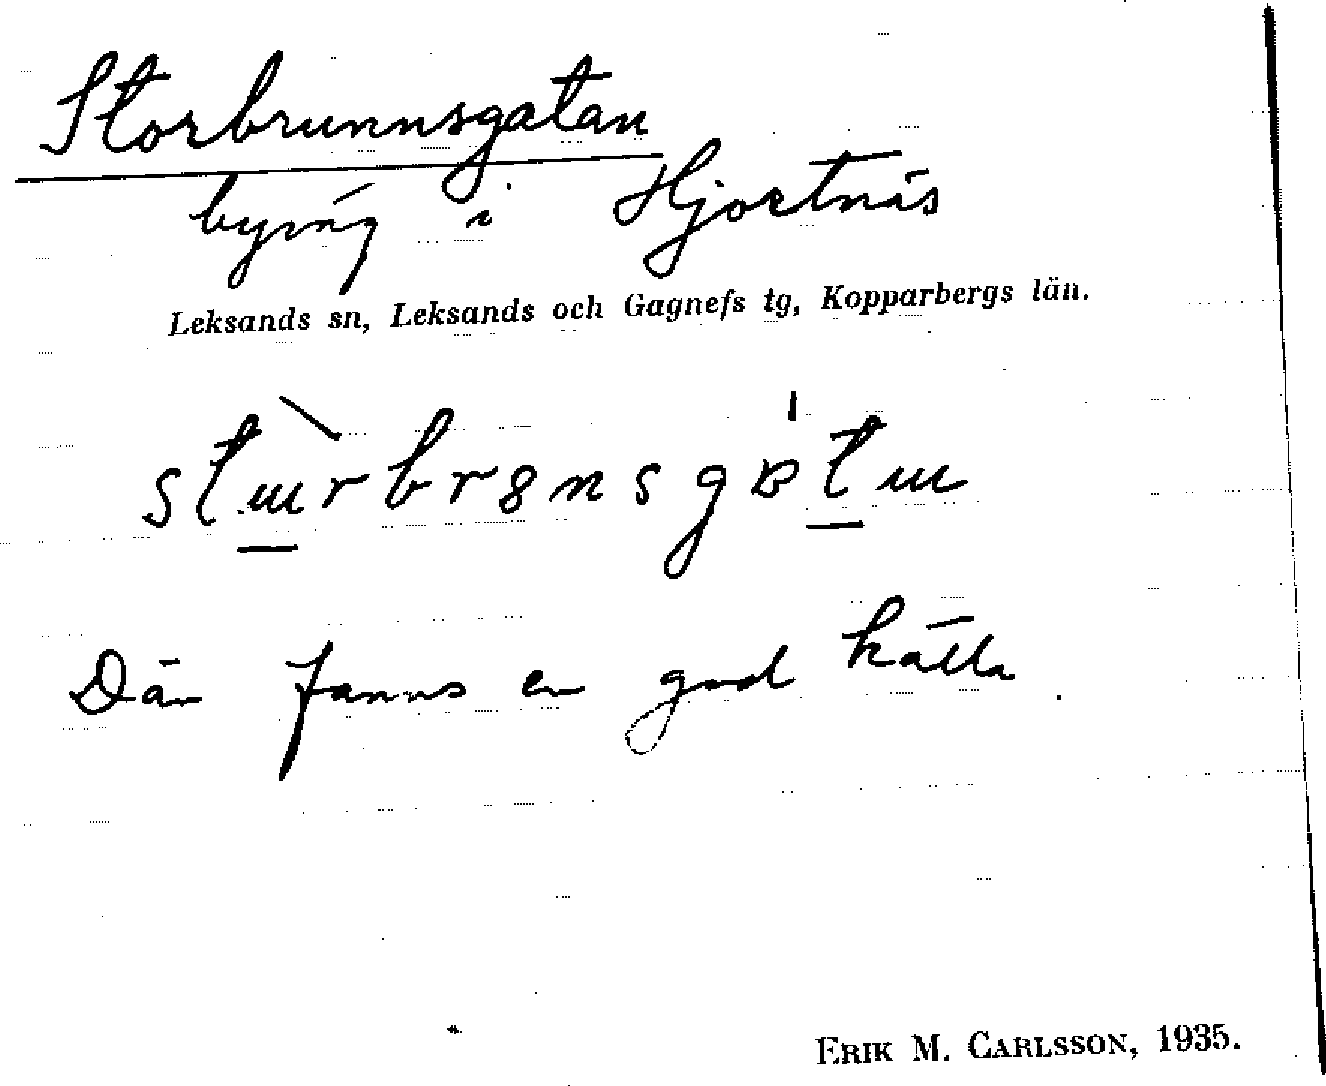 Storbrunnsgatan
byväg i Hjortnäs
Leksands sn, Leksands och Gagnefs tg, Kopparbergs län.
Där fanns en god källa.
ERIK M. CARLSSON, 1935.